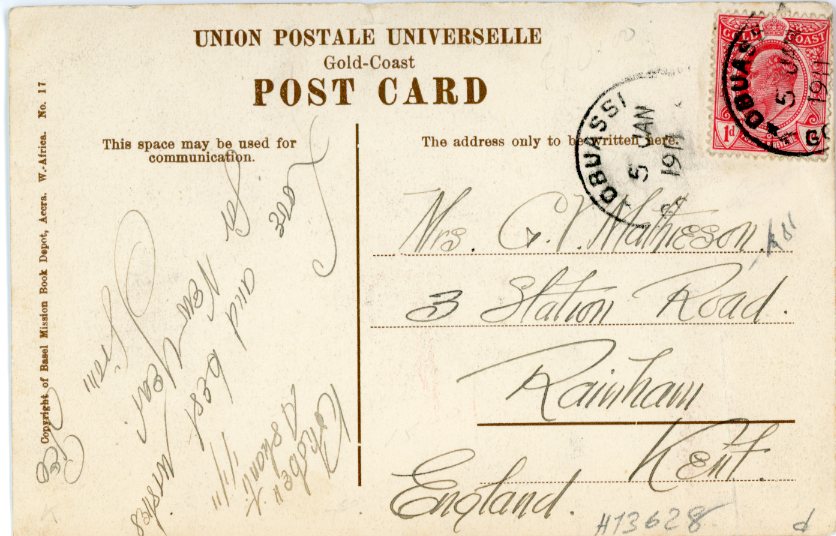 UNION POSTALE UNIVERSELLE
Gold-Coast
POST CARD
This space may be used for
communication.
The address only to be written here.
Copyright of Basel Mission Book Depot, Accra. W.-Africa. No. 17
GOLD COAST
1d
OBUASSI
5 JA
1911
OBUASSI
5 JAN
1911
Ashanti
1/1/11
Love
and best
for
New Year
wishes
from
Mrs. G. V. Mathieson.
3 Station Road.
Rainham
Kent.
England.
H13628
d